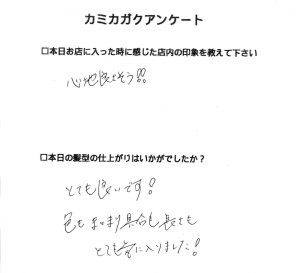 カミカガクアンケート
□本日お店に入った時に感じた店内の印象を教えて下さい
心地良さそう!!
□本日の髪型の仕上がりはいかがでしたか?
とても良いです!
色もまとまり具合も長さも
とても気に入りました!